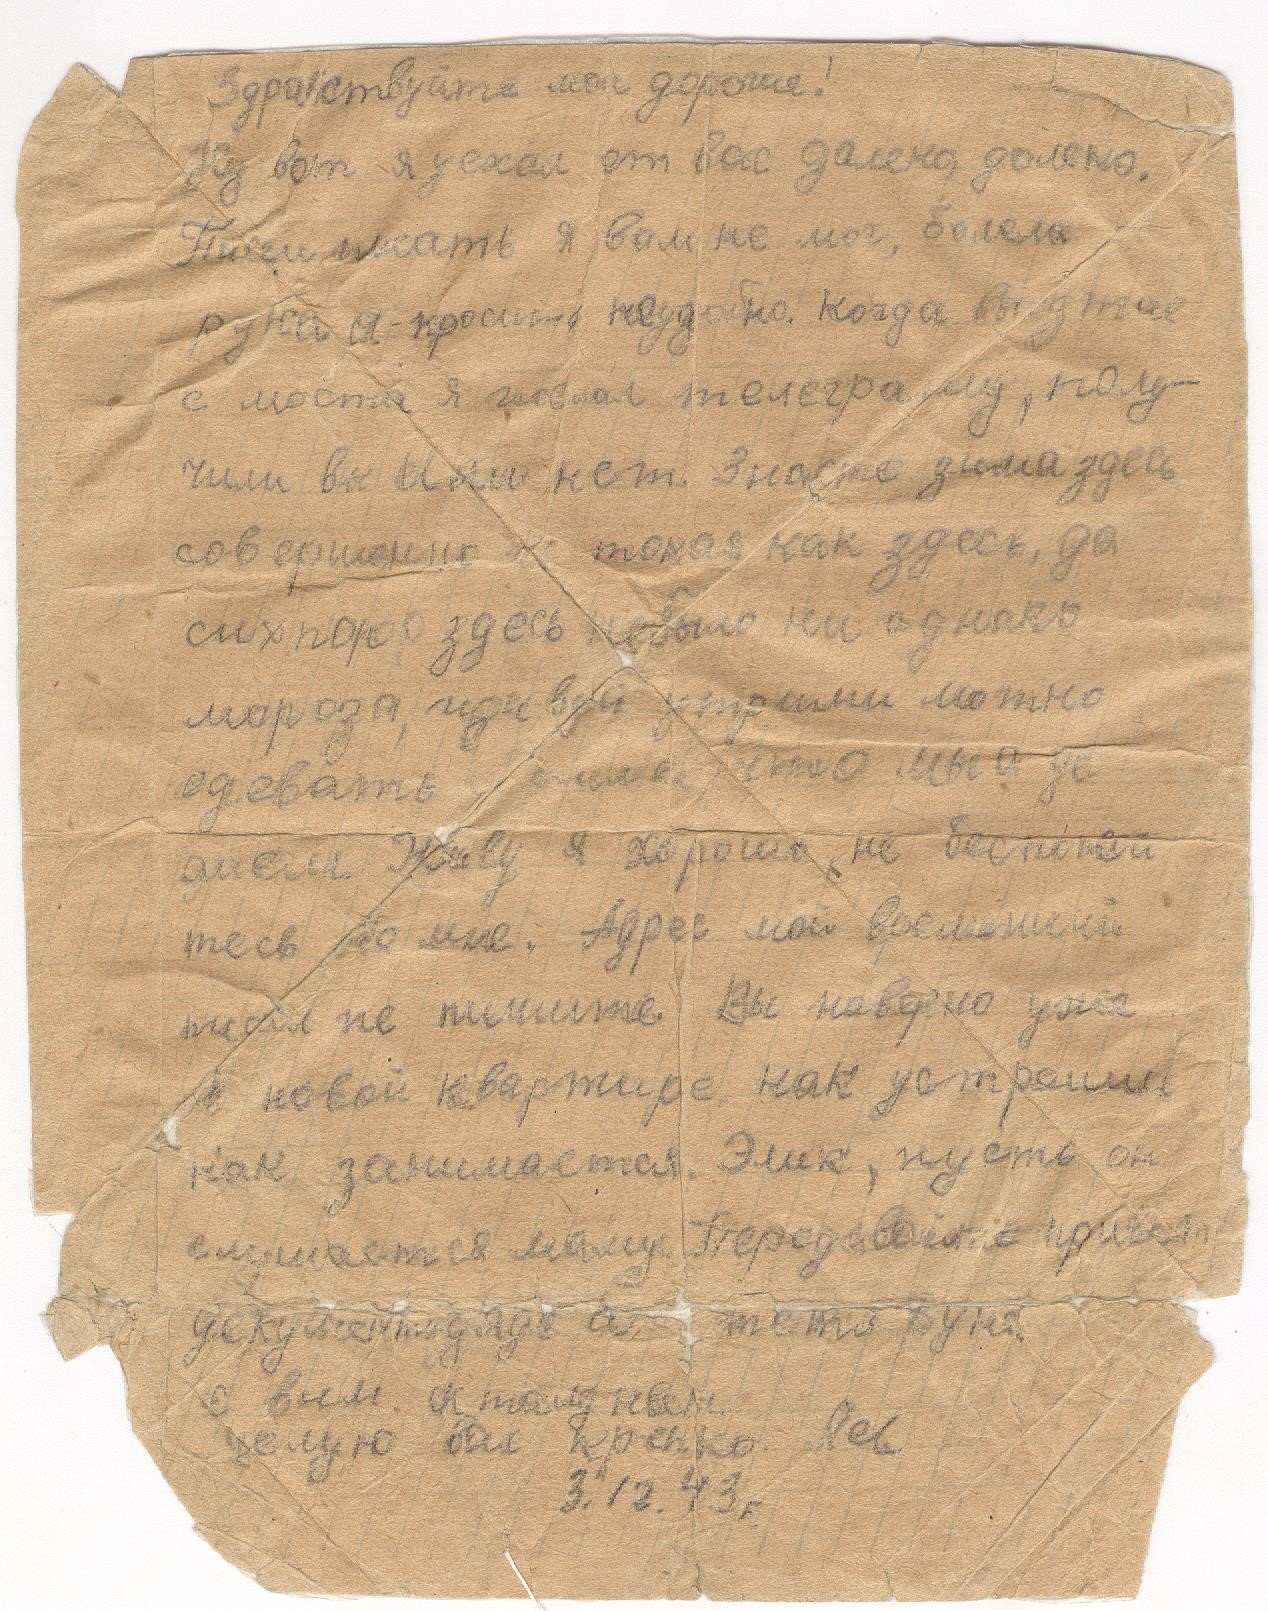 Здравствуйте мои дорогие!
Ну вот я уехал от вас далеко, далеко.
писать я вам не мог, болела
рука а просить неудобно. Когда
с моста я послал телеграмму, полу-
чили вы или нет. Знаете зима здесь
совершенно не такая как здесь, да
сих пор здесь небыло ни однако
мороза,
одевать что мы и де
лаем. Живу я хорошо, не беспокой
тесь обо мне. Адрес мой
писем не пишите. Вы наверно уже
в новой квартире как устроили
как занимается. Элик, пусть он
слушается маму. Передавайте привет
дяде тете
с
целую вас крепко. Лев
3.12.43г